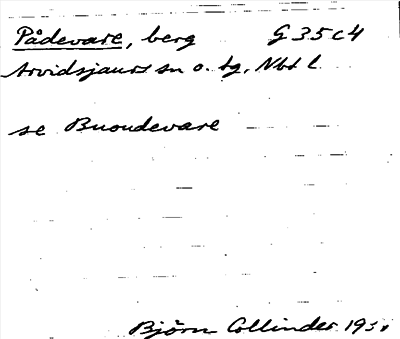 Pådevare, berg G 35 c 4
Arvidsjaurs sn o. tg, Nbt l.
se Buoudevare
Björn Collinder